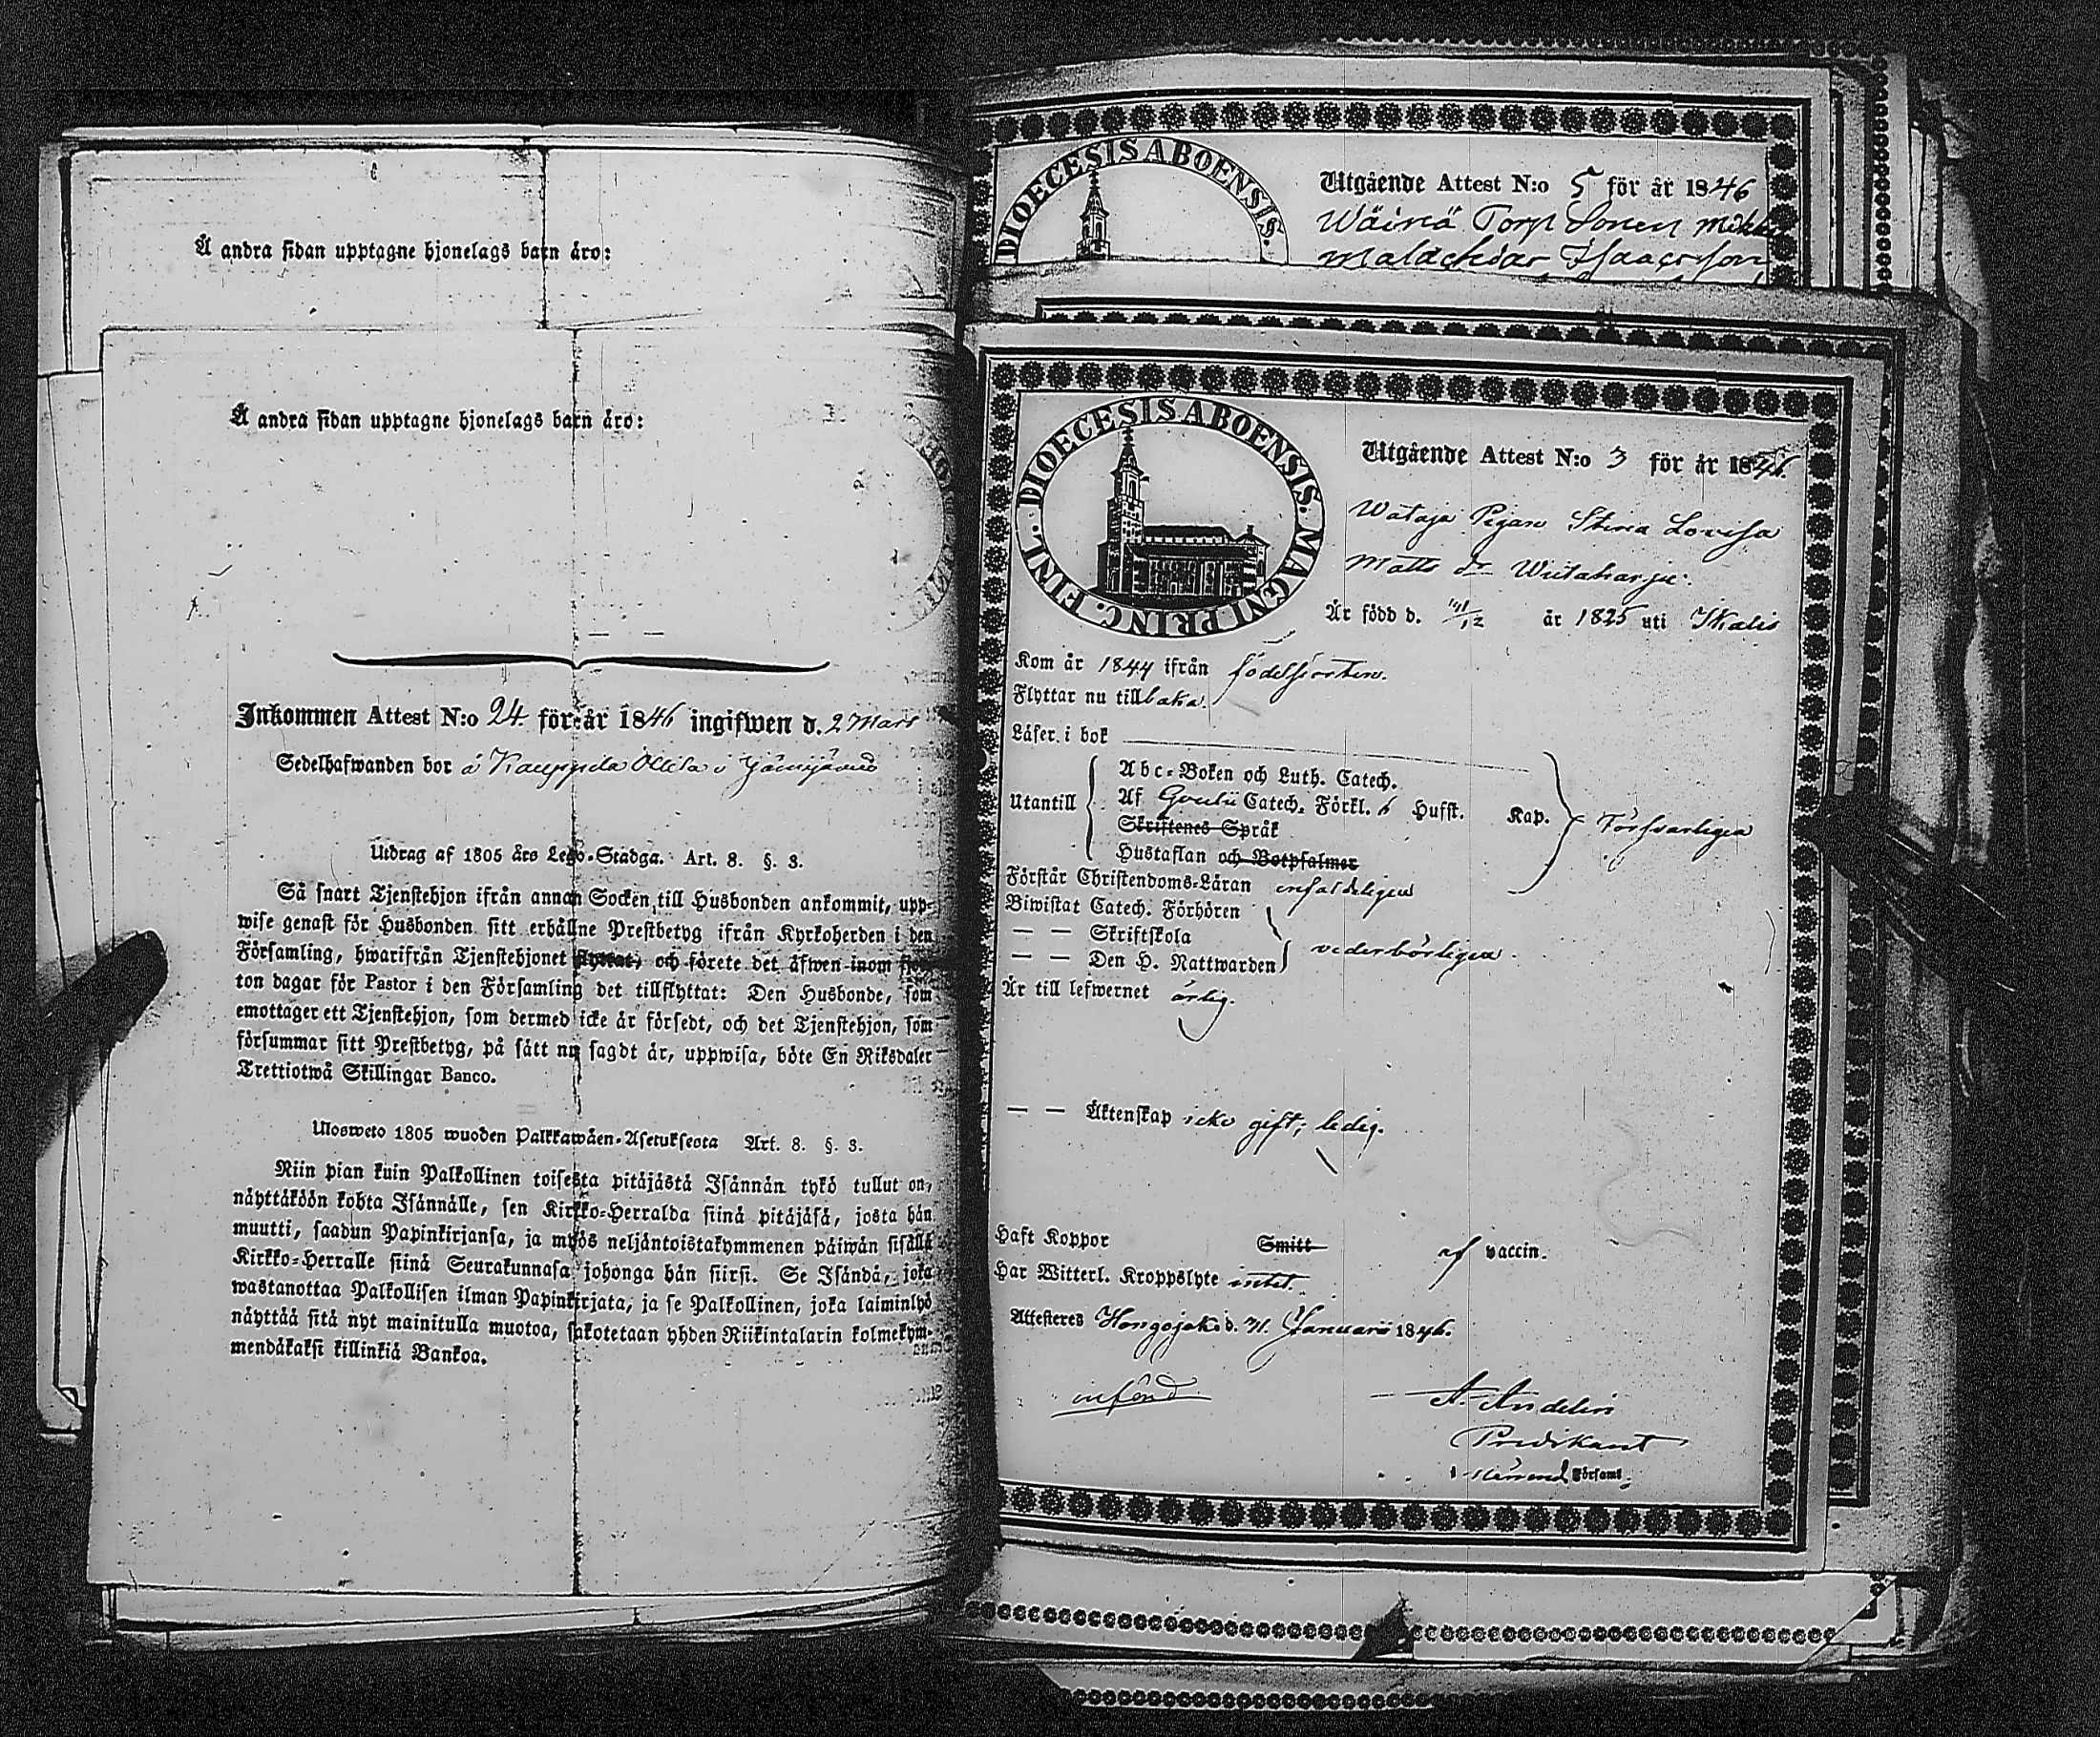 Å andra sidan upptagne hjonelags barn äro:
Å andra sidan upptagne hjonelags barn äro:
Inkommen Attest N:o 24 för år 1846 ingifwen d. 2 Mars
Sedelhafwanden bor å Kauppila Ollila i Jämijärvi
Utdrag af 1805 års Lego-Stadga. Art. 8. §. 3.
Så snart Tjenstehjon ifrån annan Socken till Husbonden ankommit, upp-
wise genast för Husbonden sitt erhållne Prestbetyg ifrån Kyrkoherden i den
Församling, hwarifrån Tjenstehjonet flyttat, och förete det äfwen inom fjor-
ton dagar för Pastor i den Församling det tillflyttat: Den Husbonde, som
emottager ett Tjenstehjon, som dermed icke är försedt, och det Tjenstehjon, som
försummar sitt Prestbetyg, på sätt nu sagdt är, uppwisa, böte En Riksdaler
Trettiotwå Skillingar Banco.
Ulosweto 1805 wuoden Palkkawäen-Asetuksesta Art. 8. §. 3.
Niin pian kuin Palkollinen toisesta pitäjästä Isännän tykö tullut on,
näyttäköön kohta Isännälle, sen Kirkko-Herralda siinä pitäjäsä, josta hän
muutti, saadun Papinkirjansa, ja myös neljäntoistakymmenen päiwän sisällä
Kirkko-Herralle siinä Seurakunnasa johonga hän siirsi. Se Isändä, joka
wastanottaa Palkollisen ilman Papinkirjata, ja se Palkollinen, joka laiminlyö
näyttää sitä nyt mainitulla muotoa, sakotetaan yhden Riikintalarin kolmekym-
mendäkaksi killinkiä Bankoa.
DIOECESIS ABOENSIS.
Utgående Attest N:o 5 för år 1846
Wäinä Torp Sonen Mikk
Malachias Isaacsson
FINL. DIOECESIS ABOENSIS. MAGNI PRINC.
Utgående Attest N:o 3 för år 1846.
Wataja Pigan Stina Lovisa
Matts dr Wiitaharju.
Är född d. /12 år 1825 uti Ikalis
Kom år 1844 ifrån födelseorten.
Flyttar nu tillbaka.
Läser i bok
Utantill
Abc-Boken och Luth. Catech.
Af Catech. Förkl. 6 Husst. Kap. Försvarligen
Skriftenes Språk
Hustaflan och Botpsalmer
Förstår Christendoms-Läran enfaldeligen
Biwistat Catech. Förhören
— — Skriftskola
— — Den H. Nattwarden vederbörligen.
Är till lefwernet ärlig.
— — Äktenskap icke gift; ledig.
Haft Koppor Smitt af vaccin.
Har Witterl. Kroppslyte intet.
Attesteres Hongojoki d. 31. Januari 1846.
införd
A. Andelin
Predikant
i Församl.